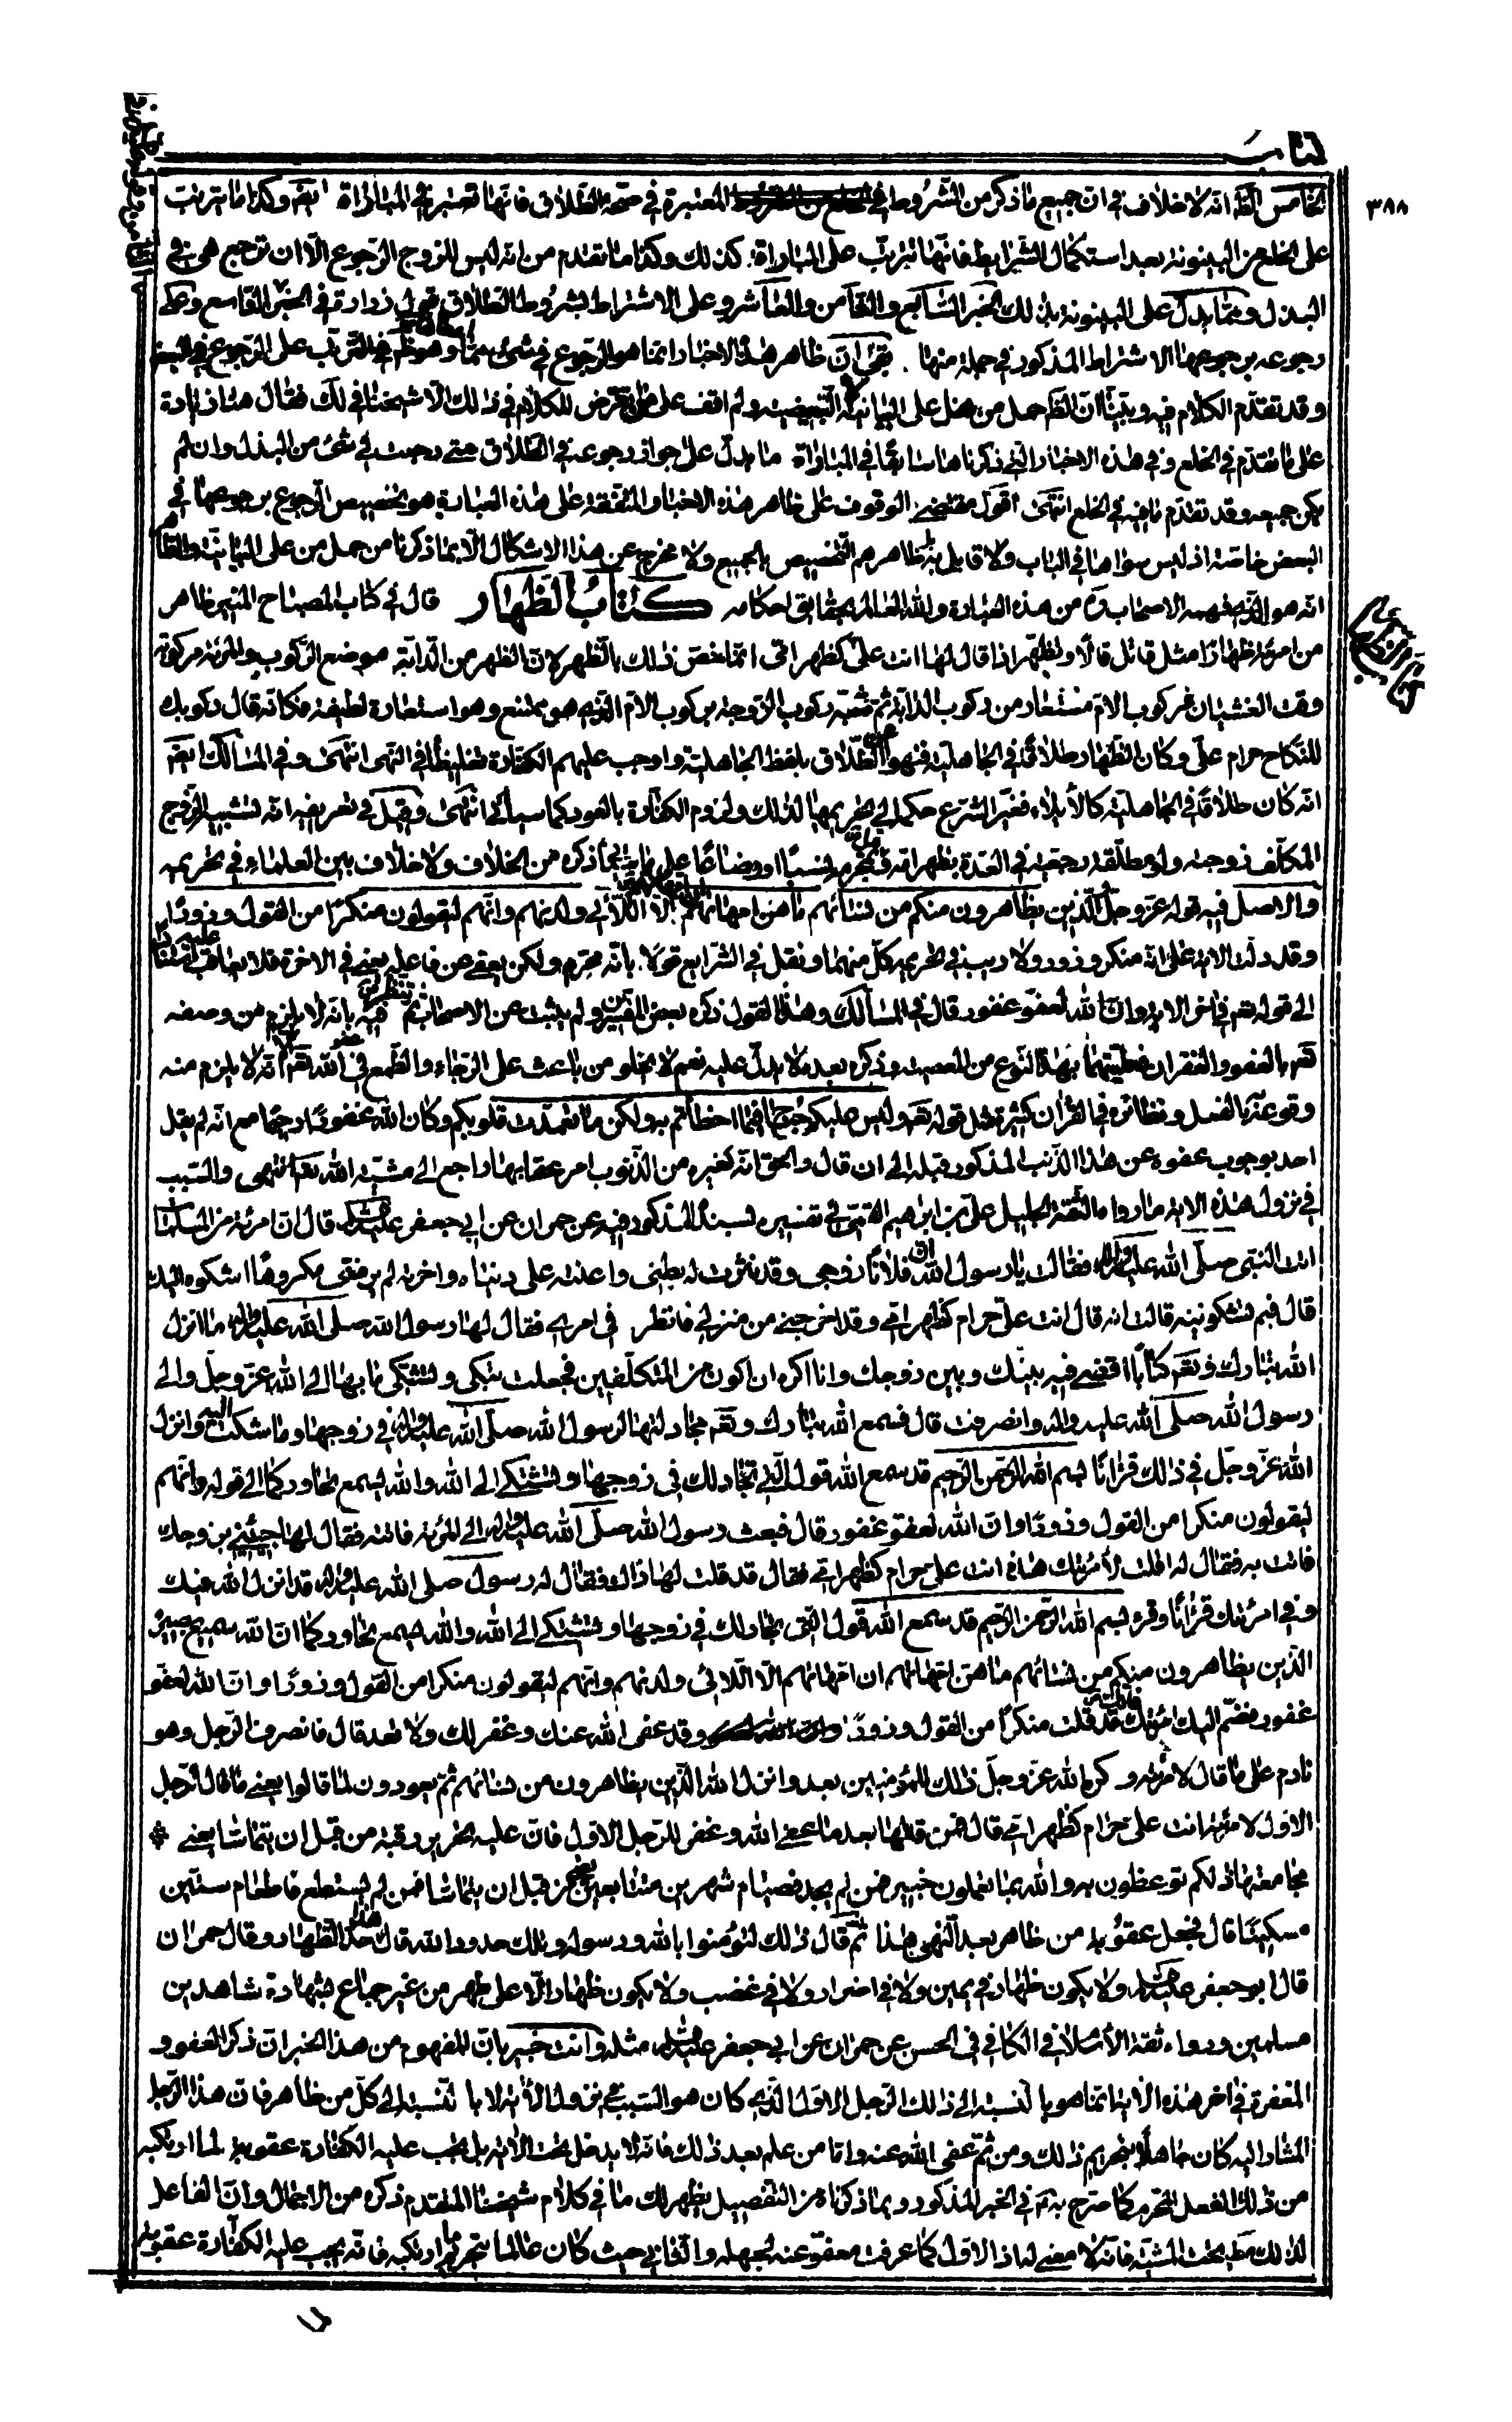 كتاب
٣٨٨
الخامس الظ انه لا خلاف في ان جميع ما ذكر من الشروط في المعتبرة في صحة الطلاق فانها تعتبر في المباراة ايضا وكذا ما يترتب
على الخلع من البينونة بعد استكمال الشرايط فانها تترتب على المباراة كذلك وكذا ما تقدم من انه ليس للزوج الرجوع الا ان ترجع هي في
البذل ومما يدل على البينونة بذلك الخبر السابع والثامن والعاشر وعلى الاشتراط بشروط الطلاق قوله زرارة في الخبر التاسع وعلى
رجوعه برجوعها الاشتراط المذكور في جملة منها . بقي ان ظاهر هذه الاخبار انما هو الرجوع في شئ مما وهو ظ في الترتب على الرجوع في البعض
وقد تقدم الكلام فيه وبينا ان الظ حمل من هنا على البيانية لا التبعيضية ولم اقف على من تعرض للكلام في ذلك الا شيخنا في لك فقال هنا زيادة
على ما تقدم في الخلع وفي هذه الاخبار التي ذكرناها سابقا في المباراة ما يدل على جواز رجوعه في الطلاق متى رجعت في شئ من البذل وان لم
يكن جميعه وقد تقدم ما فيه في الخلع انتهى اقول مقتضى الوقوف على ظاهر هذه الاخبار المتفقة على هذه العبارة هو تخصيص الرجوع برجوعها في
البعض خاصة اذ ليس سواها في الباب ولا قايل به بل ظاهرهم التخصيص بالجميع ولا مخرج عن هذا الاشكال الا بما ذكرنا من حمل من على البيانية والظ
انه هو الذي فهمه الاصحاب ره من هذه العبارة والله العالم بحقايق احكامه كتاب الظهار قال في كتاب المصباح المنير ظاهر
من امرئته ظهارا مثل قاتل قتالا وتظهر اذا قال لها انت علي كظهر امي انما خص ذلك بالظهر لان الظهر من الدابة موضع الركوب والمرئة مركوبة
وقت الغشيان فركوب الام مستعار من ركوب الدابة ثم شبه ركوب الزوجة بركوب الام الذي هو ممتنع وهو استعارة لطيفة فكانه قال ركوبك
للنكاح حرام علي وكان الظهار طلاقا في الجاهلية فنهوا عن الطلاق بلفظ الجاهلية واوجب عليهم الكفارة تغليظا في النهى انتهى وفي المسالك ايضا
انه كان طلاقا في الجاهلية كالايلاء فغير الشرع حكمه الى تحريمها لذلك ولزوم الكفارة بالعود كما سيأتي انتهى وقيل في تعريفه انه تشبيه الزوج
المكلف زوجته ولو مطلقة رجعية في العدة بظهر امه او محرم نسبا او رضاعا على ما يأتي ذكره من الخلاف ولا خلاف بين العلماء في تحريمه
والاصل فيه قوله عز وجل الذين يظاهرون منكم من نسائهم ما هن امهاتهم ان امهاتهم الا اللائي ولدنهم وانهم ليقولون منكرا من القول وزورا
وقد دلت الاية على انه منكر وزور ولا ريب في تحريم كل منهما ونقل في الشرايع قولا بانه محرم ولكن يعفى عن فاعله يعني في الاخرة فلا يعاقب عليه استنادا
الى قوله تعالى في اخر الاية وان الله لعفو غفور قال في المسالك وهذا القول ذكره بعض المفسرين ولم يثبت عن الاصحاب ثم تنظر فيه بانه لا يلزم من وصفه
تعالى بالعفو والغفران فعليتهما بهذا النوع من المعصية وذكره بعده لا يدل عليه نعم لا يخلو من باعث على الرجاء والطمع في عفو الله تعالى الا انه لا يلزم منه
وقوعه بالفعل ونظائره في القران كثيرة مثل قوله تعالى وليس عليكم جناح فيما اخطأتم به ولكن ما تعمدت قلوبكم وكان الله غفورا رحيما مع انه لم يقل
احد بوجوب عفوه عن هذا الذنب المذكور قبله الى ان قال والحق انه كغيره من الذنوب امر عقابها راجع الى مشية الله تعالى انتهى والسبب
في نزول هذه الاية ما رواه الثقة الجليل علي بن ابرهيم القمي في تفسيره بسنده المذكور فيه عن حمران عن ابي جعفر عليه السلام قال ان امرئة من المسلمات
اتت النبي صلى الله عليه واله فقالت يا رسول الله ان فلانا زوجي وقد نثرت له بطني واعنته على دنياه واخرته لم ير مني مكروها اشكوه اليك
قال فيم تشكونيه قالت انه قال انت علي حرام كظهر امي وقد اخرجني من منزلي فانظر في امري فقال لها رسول الله صلى الله عليه واله ما انزل
الله تبارك وتعالى كتابا اقضي فيه بينك وبين زوجك وانا اكره ان اكون من المتكلفين فجعلت تبكي وتشتكي ما بها الى الله عز وجل والى
رسول الله صلى الله عليه واله وانصرفت قال فسمع الله تبارك وتعالى مجادلتها لرسول الله صلى الله عليه واله في زوجها وما شكت اليه وانزل
الله عز وجل في ذلك قرانا بسم الله الرحمن الرحيم قد سمع الله قول التي تجادلك في زوجها وتشتكي الى الله والله يسمع تحاوركما الى قوله وانهم
ليقولون منكرا من القول وزورا وان الله لعفو غفور قال فبعث رسول الله صلى الله عليه واله الى المرئة فاتته فقال لها جيئني بزوجك
فاتت به فقال له اقلت لامرئتك هذه انت علي حرام كظهر امي فقال قد قلت لها ذلك فقال له رسول صلى الله عليه واله قد انزل الله فيك
وفي امرئتك قرانا وقرء بسم الله الرحمن الرحيم قد سمع الله قول التي تجادلك في زوجها وتشتكي الى الله والله يسمع تحاوركما ان الله سميع بصير
الذين يظاهرون منكم من نسائهم ما هن امهاتهم ان امهاتهم الا اللائي ولدنهم وانهم ليقولون منكرا من القول وزورا وان الله لعفو
غفور فضم اليك امرئتك فانك قد قلت منكرا من القول وزورا وقد عفى الله عنك وغفر لك ولا تعد قال فانصرف الرجل وهو
نادم على ما قال لامرئته وكره الله عز وجل ذلك للمؤمنين بعد وانزل الله الذين يظاهرون من نسائهم ثم يعودون لما قالوا يعني ما قال الرجل
الاول لامرئته انت علي حرام كظهر امي قال فمن قالها بعد ما عفى الله وغفر للرجل الاول فان عليه تحرير رقبة من قبل ان يتماسا يعني
مجامعتها ذلكم توعظون به والله بما تعملون خبير فمن لم يجد فصيام شهرين متتابعين من قبل ان يتماسا فمن لم يستطع فاطعام ستين
مسكينا قال فجعل عقوبة من ظاهر بعد النهي هذا ثم قال ذلك لتؤمنوا بالله ورسوله وتلك حدود الله قال هذا حد الظهار وقال حمران
قال ابو جعفر عليه السلام ولا يكون ظهار في يمين ولا في اضرار ولا في غضب ولا يكون ظهار الا على طهر من غير جماع بشهادة شاهدين
مسلمين ورواه ثقة الاسلام في الكافي في الحسن عن حمران عن ابي جعفر عليه السلام مثله وانت خبير بان المفهوم من هذا الخبر ان ذكر العفو و
المغفرة في اخر هذه الاية انما هو بالنسبة الى ذلك الرجل الاول الذي كان هو السبب في نزول الاية لا بالنسبة الى كل من ظاهر فان هذا الرجل
المشار اليه كان جاهلا بتحريم ذلك ومن ثم عفى الله عنه واما من علم بعد ذلك فانه لا يدخل تحت الاية بل يجب عليه الكفارة عقوبة لما ارتكبه
من ذلك الفعل المحرم كما صرح به في الخبر المذكور وبما ذكرناه من التفصيل يظهر لك ما في كلام شيخنا المتقدم ذكره من الاجمال وان الفاعل
لذلك تحت المشية فانه لا معنى له اذ الاول كما عرفت معفو عنه لجهله والثاني حيث كان عالما بتحريم ما ارتكبه فانه يجب عليه الكفارة عقوبة